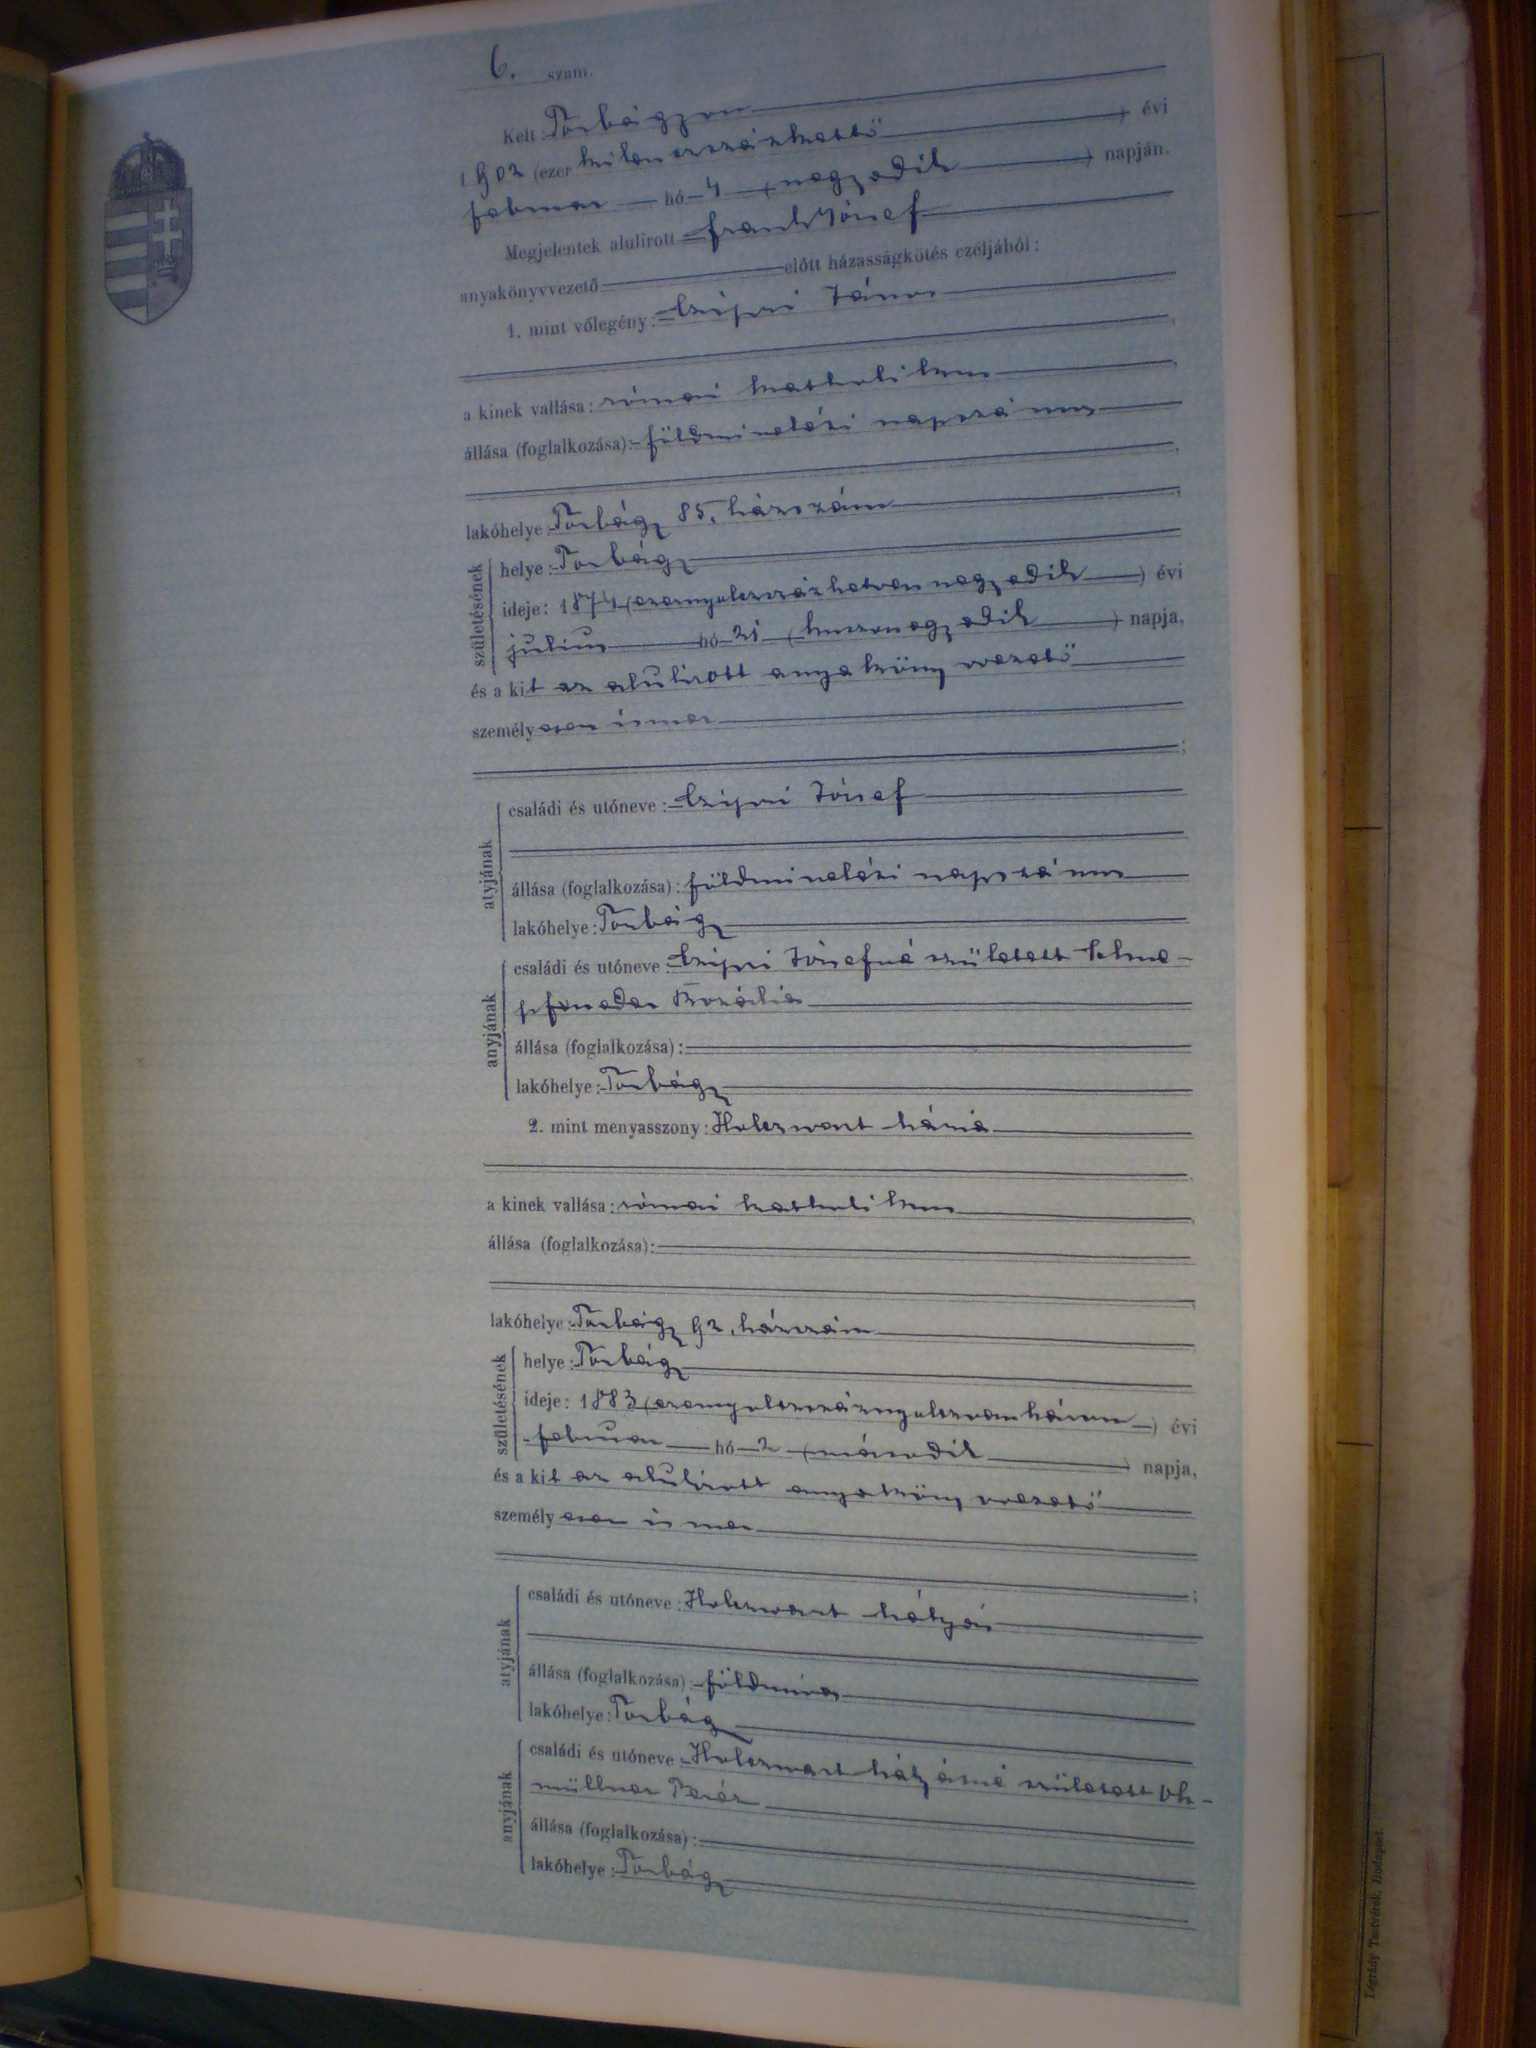 6. szám.
Kelt: Torbágyon
1902 (ezer kilenczszázkettő) évi
február hó 4 (negyedik) napján.
Megjelentek alulirott Frank József
anyakönyvvezető előtt házasságkötés czéljából:
1. mint vőlegény: Czipri János
a kinek vallása: római katholikus
állása (foglalkozása): földmivelési napszámos
lakóhelye: Torbágy 85. házszám
születésének
helye: Torbágy
ideje: 1874 (ezernyolczszázhetvennegyedik) évi
julius hó 21 ( napja,
és a kit az alulirott anyakönyvvezető
személyesen ismer
;
atyjának
családi és utóneve: Czipri József
állása (foglalkozása): földmivelési napszámos
lakóhelye: Torbágy
anyjának
családi és utóneve: Czipri Józsefné született
Rozália
állása (foglalkozása):
lakóhelye: Torbágy
2. mint menyasszony: Holczwart Mária
a kinek vallása: római katholikus
állása (foglalkozása):
lakóhelye: Torbágy 92. házszám
születésének
helye: Torbágy
ideje: 1883 (ezernyolczszáznyolczvanhárom) évi
február hó 2 (második) napja,
és a kit az alulirott anyakönyvvezető
személyesen ismer
;
atyjának
családi és utóneve: Holczwart Mátyás
állása (foglalkozása): földmives
lakóhelye: Torbágy
anyjának
családi és utóneve: Holczwart Mátyásné született Ok-
müllner Teréz
állása (foglalkozása):
lakóhelye: Torbágy
Légrády Testvérek, Budapest.